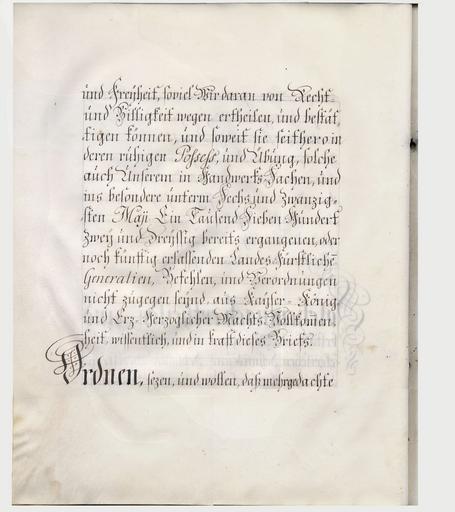 und Freÿheit, soviel Wir daran von Recht
und Billigkeit wegen ertheilen, und bestät
tigen können, und soweit sie seithero in
deren rühigen Possess, und Übung, solche
auch Unserem in Handwerks Sachen, und
ins besondere unterm Sechs und Zwanzig-
sten Maji Ein Tausend Sieben Hundert
Zweÿ und Dreÿssig bereits ergangenen, oder
noch künftig erlassenden Landes Fürstlichē
Generalien, Befehlen, und Verordnungen
nicht zugegen seÿnd, aus Kaÿser- König
und Erz-Herzoglicher Machts Vollkomen
heit, wissentlich, und in kraft dieses Briefs.
Ordnen, sezen, und wollen, daß mehrgedachte